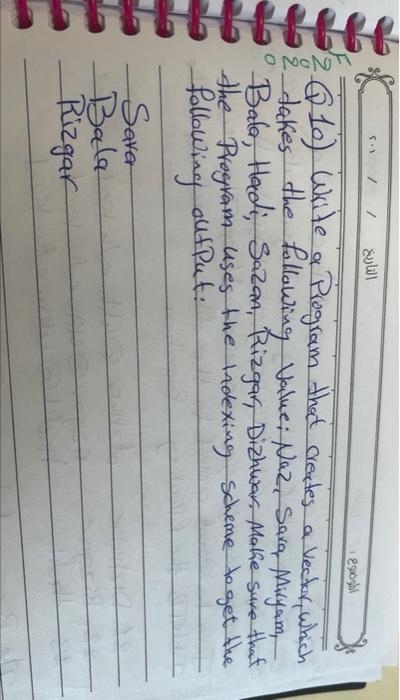 التاريخ / / ٢٠١
الموضوع:
Q 10) Write a Program that creates a Vector, which
takes the following Value: Naz, Sara, Miryam,
Bala, Hadi, Sazan, Rizgar, Dizhwar. Make sure that
the Program uses the Indexing Scheme to get the
following output:
Sara
Bala
Rizgar